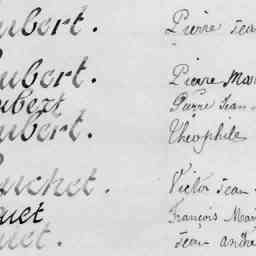 ubert. Pierre Jean
ubert. Pierre Mar
ubert Pierre Jean
ubert. Théophile
uchet. Victor Jean
uet François Mar
uet. Jean André